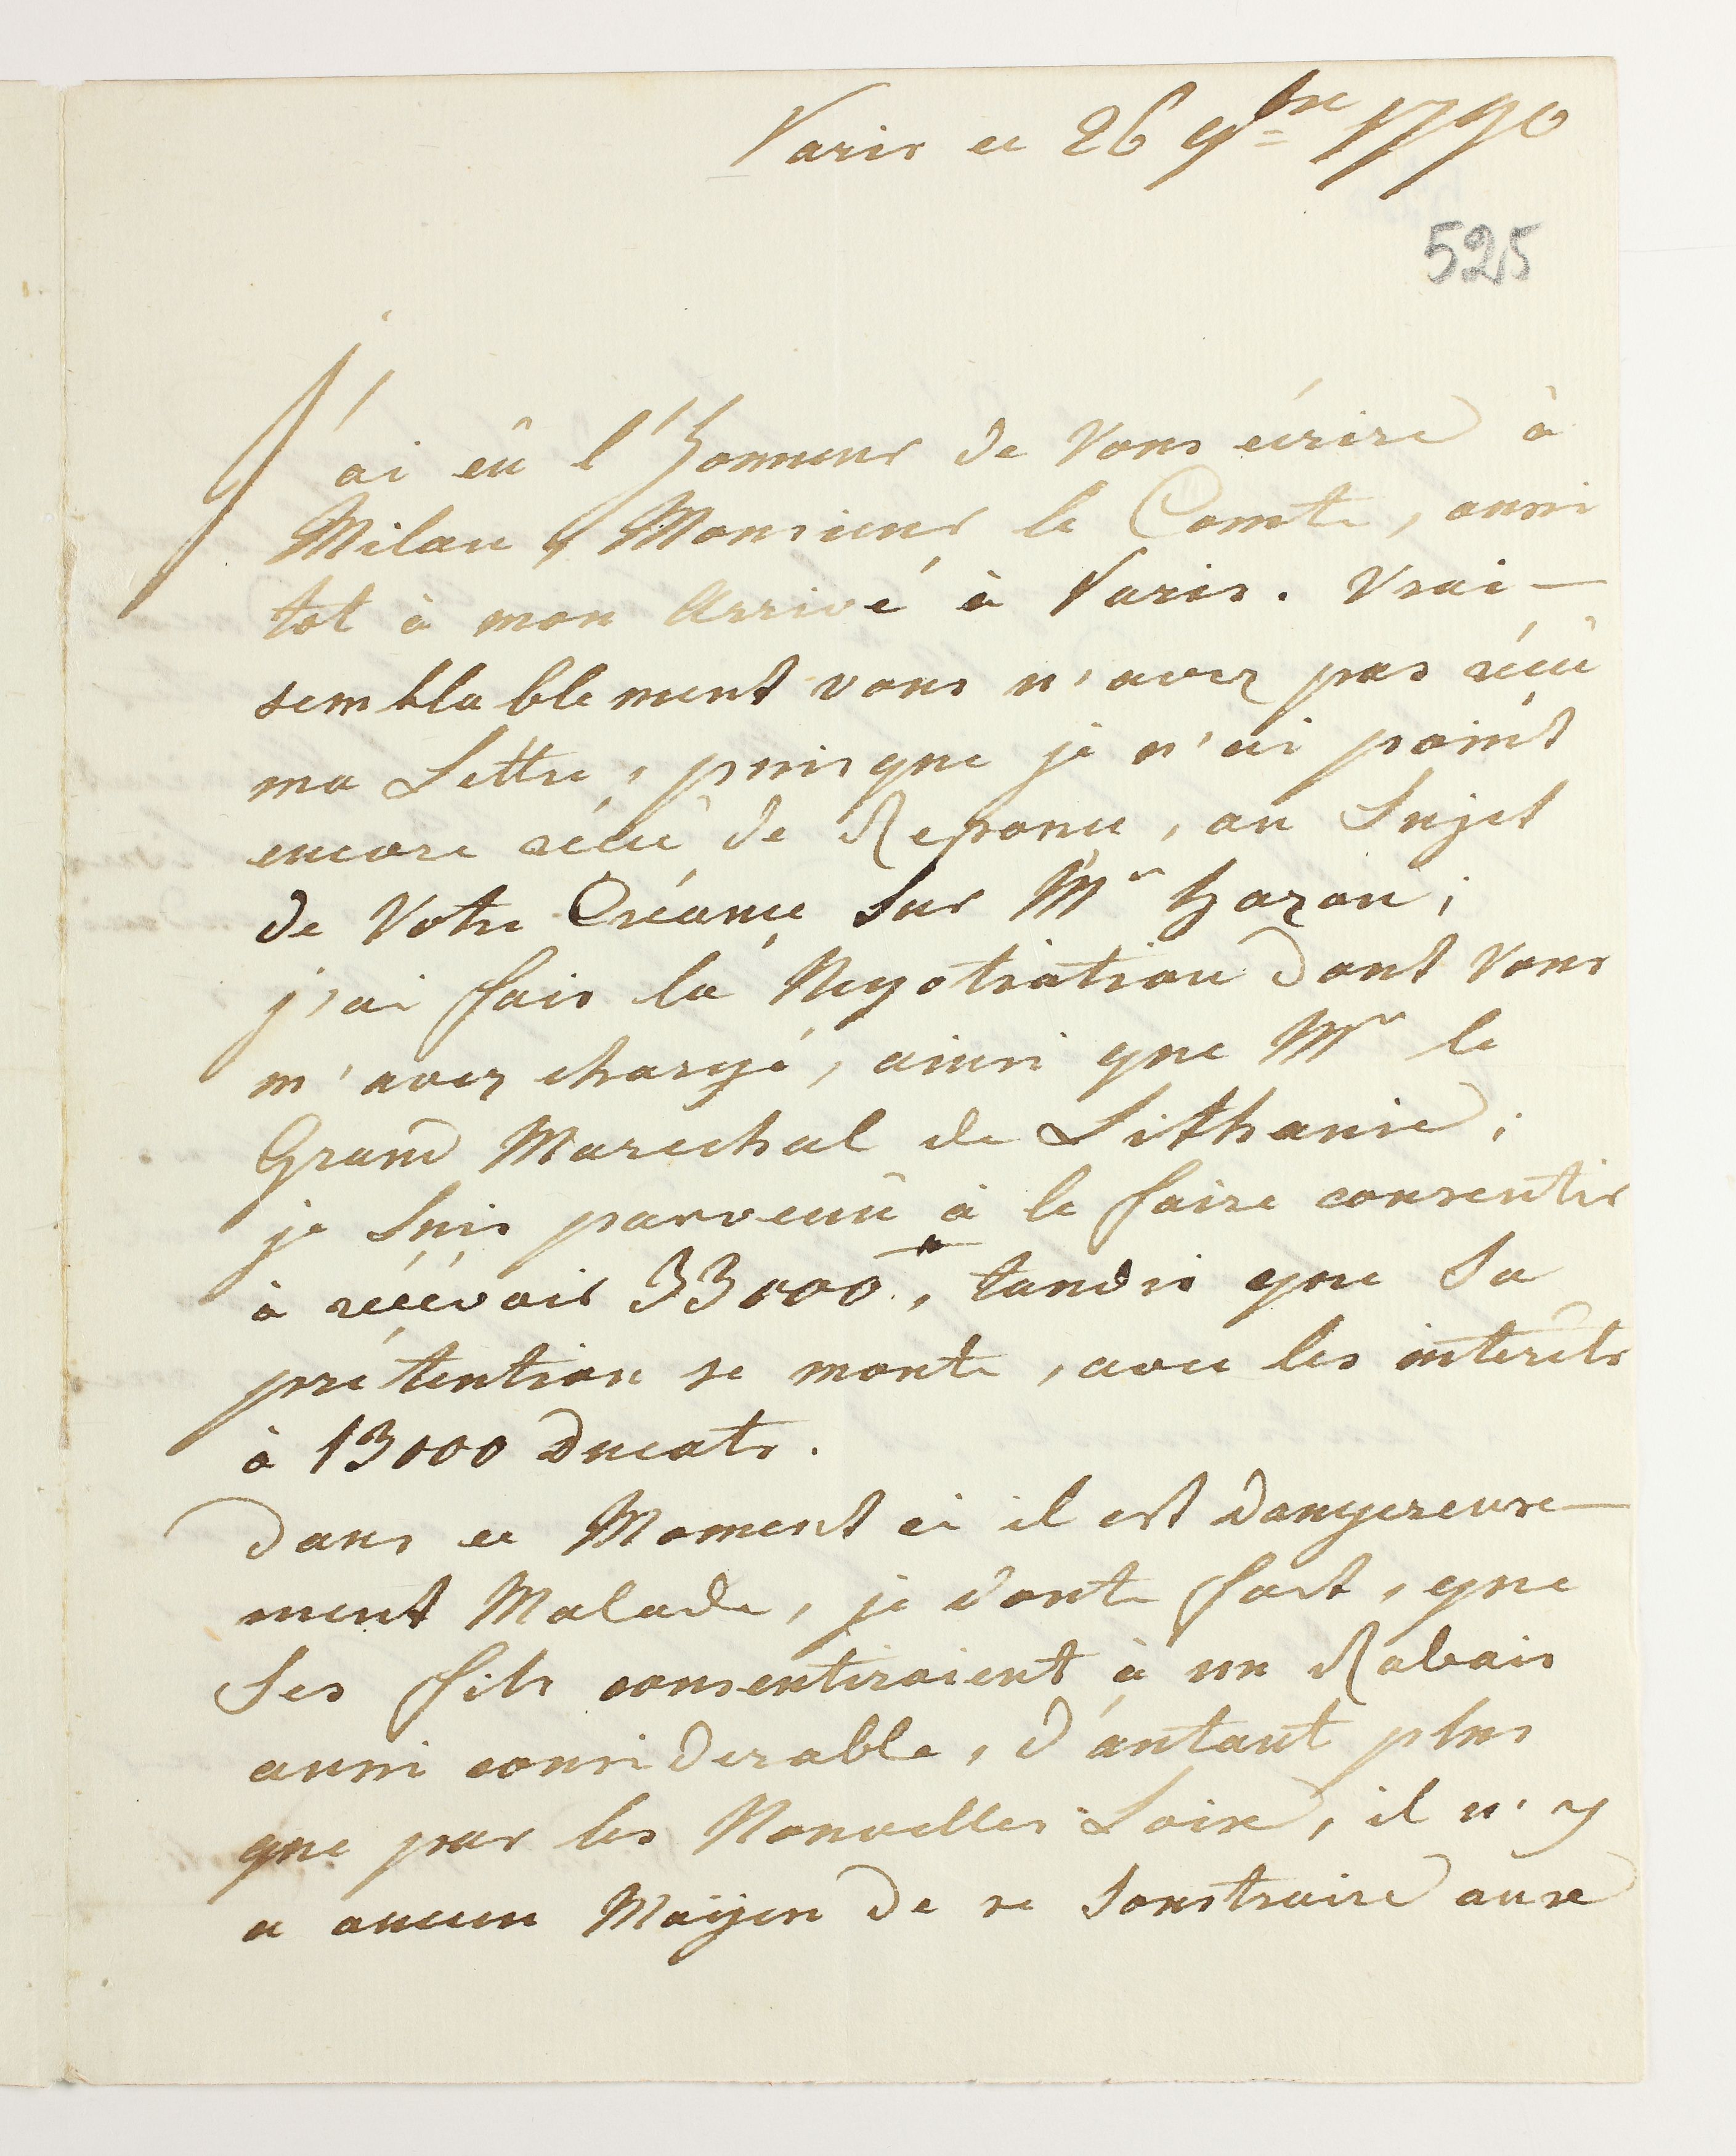 Paris ce 26 9bre 1790
525
J'ai eû l'honneur de Vous écrire à
Milan, Monsieur le Comte, aussi
tot à mon Arrivé à Paris. Vrai-
semblablement vous n'avez pas récû
ma Lettre, puisque je n'ai point
encore récû de Reponce, au Sujet
de Votre Créance Sur Mr Hazon;
j'ai fais la Negotiation dont Vous
m'avez chargé, ainsi que Mr le
Grand Marechal de Lithanie;
je Suis parvenû à le faire consentir
à récévoir 33000#, tandis que Sa
prétention se monte, avec les intérêts
à 13000 Ducats.
Dans ce Moment ci il est dangereuse-
ment Malade, je doute fort, que
Ses fils consentiroient à un Rabais
aussi considerable, d'autant plus
que par les Nouvelles Loix, il n'y
a aucun Moÿen de se Soustraire aux